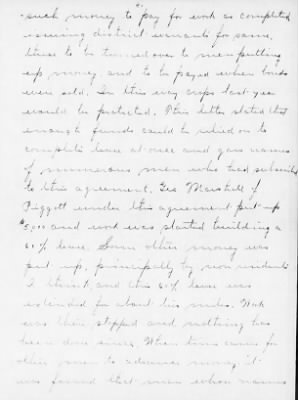 such money to pay for work as completed
issuing district warrants for same,
these to be turned over to men putting
up money, and to be payed when bonds
were sold. In this way crops last year
would be protected. This letter stated that
enough funds could be relied on to
complete levee at once and gave names
of numerous men who had subscribed
to this agreement. Geo Marshall of
Piggott under this agreement put up
$5,000 and work was started building a
60% levee. Some other money was
put up, principally by non residents
I think and this 60% levee was
extended for about six miles. Work
was then stopped and nothing has
been done since. When time came for
other men to advance money it
was found that men whose names